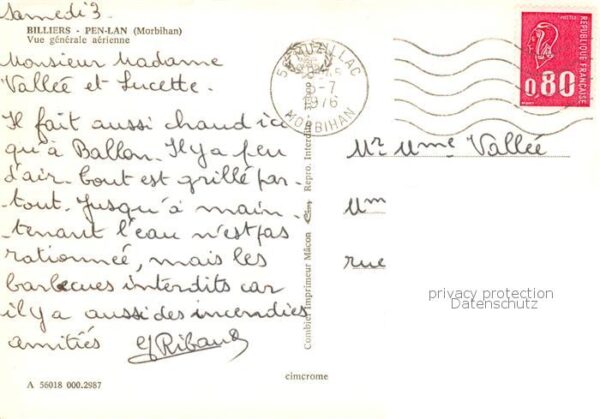 Samedi 3.
BILLIERS - PEN-LAN (Morbihan)
Vue générale aérienne
Monsieur Madame
Vallée et Lucette.
Il fait aussi chaud ici
qu'à Ballon. Il y a peu
d'air. tout est grillé par-
tout. Jusqu'à main-
tenant l'eau n'est pas
rationnée, mais les
barbecues interdits car
il y a aussi des incendies
amitiés G Ribaud
A 56018 000.2987
Combier Imprimeur Mâcon Repro. Interdite
cimcrome
MUZILLAC
-7
1976
MORBIHAN
POSTES
RÉPUBLIQUE FRANÇAISE
0,80
Mr Mme Vallée
rue
privacy protection
Datenschutz